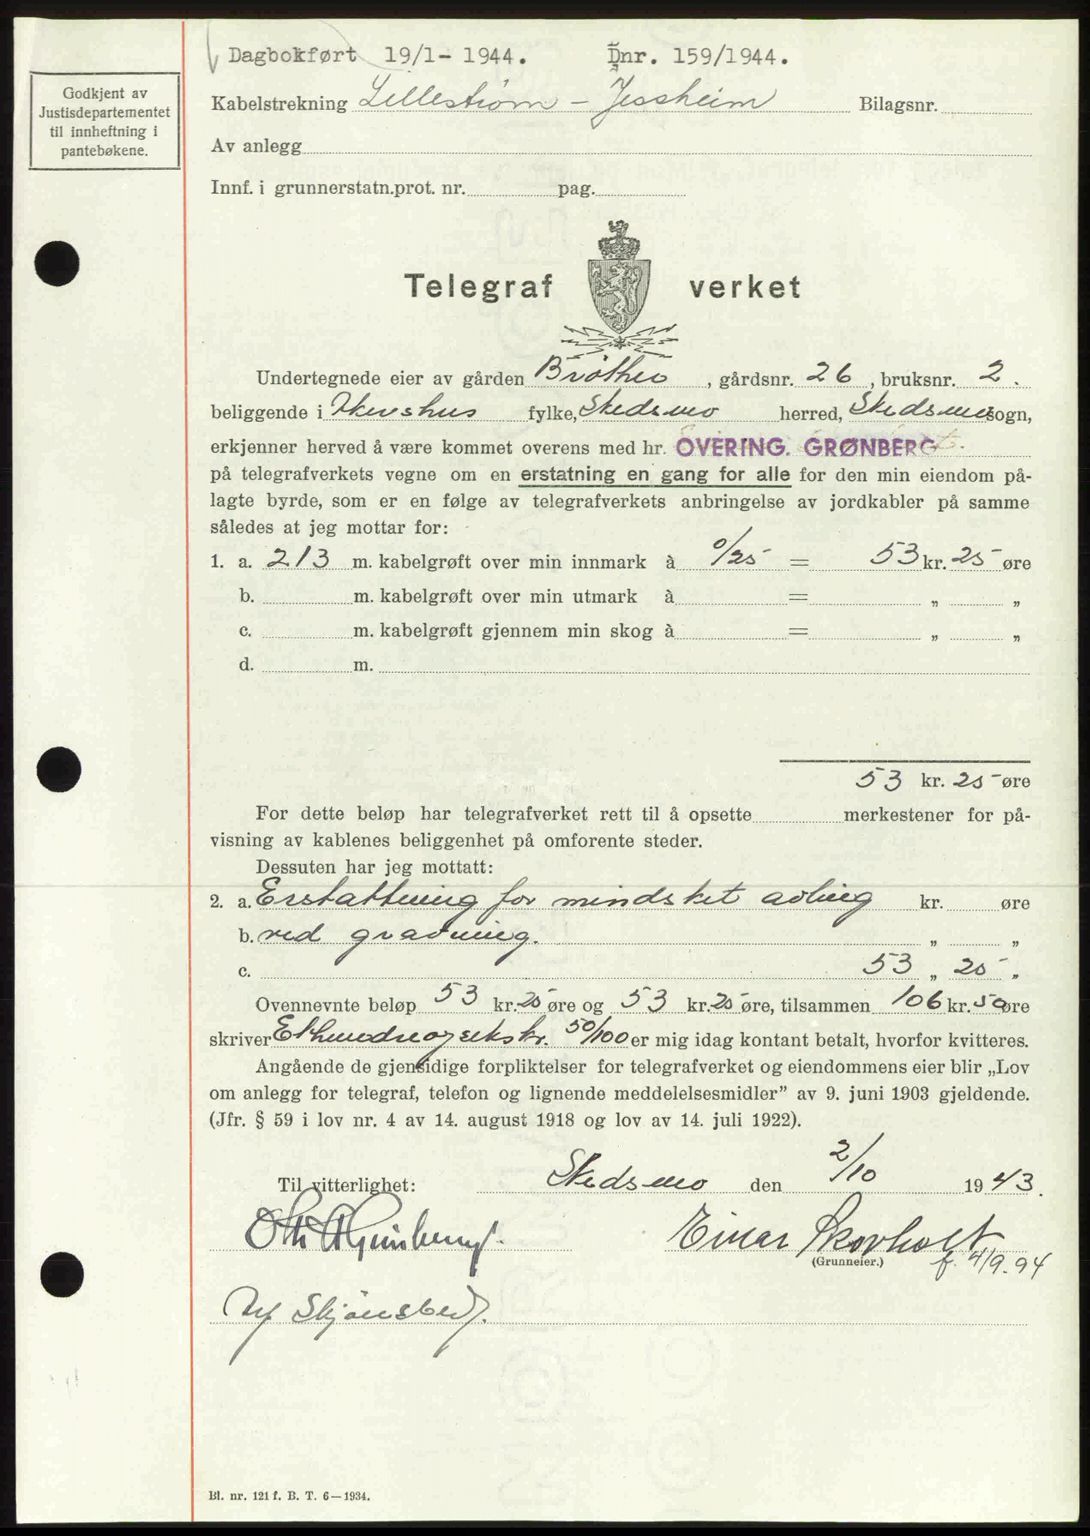 Dagbokført 19/1- 1944. Dnr. 159/1944.
Godkjent av
Justisdepartementet
til innheftning i
pantebøkene.
Kabelstrekning Lillestrøm - Jessheim Bilagsnr.
Av anlegg
Innf. i grunnerstatn.prot. nr. pag.
Telegraf verket
Undertegnede eier av gården , gårdsnr. 26, bruksnr. 2.
beliggende i Akershus fylke, Skedsmo herred, Skedsmo sogn,
erkjenner herved å være kommet overens med hr. OVERING. GRØNBERG
på telegrafverkets vegne om en erstatning en gang for alle for den min eiendom på-
lagte byrde, som er en følge av telegrafverkets anbringelse av jordkabler på samme
således at jeg mottar for:
1. a. 213 m. kabelgrøft over min innmark à 0/25 = 53 kr. 25 øre
b. m. kabelgrøft over min utmark à = „ „
c. m. kabelgrøft gjennem min skog à = „ „
d. m.
53 kr. 25 øre
For dette beløp har telegrafverket rett til å opsette merkestener for på-
visning av kablenes beliggenhet på omforente steder.
Dessuten har jeg mottatt:
2. a. Erstattning for mindsket avling kr. øre
b. ved gravning. „ „
c. 53 „ 25 „
Ovennevnte beløp 53 kr. 25 øre og 53 kr. 25 øre, tilsammen 106 kr. 50 øre
skriver Ethundreogseks kr. 50/100 er mig idag kontant betalt, hvorfor kvitteres.
Angående de gjensidige forpliktelser for telegrafverket og eiendommens eier blir „Lov
om anlegg for telegraf, telefon og lignende meddelelsesmidler” av 9. juni 1903 gjeldende.
(Jfr. § 59 i lov nr. 4 av 14. august 1918 og lov av 14. juli 1922).
Til vitterlighet: Skedsmo den 2/10 1943.
Einar Skovholt
(Grunneier.) f. 4/9.94
Bl. nr. 121 f. B. T. 6—1934.